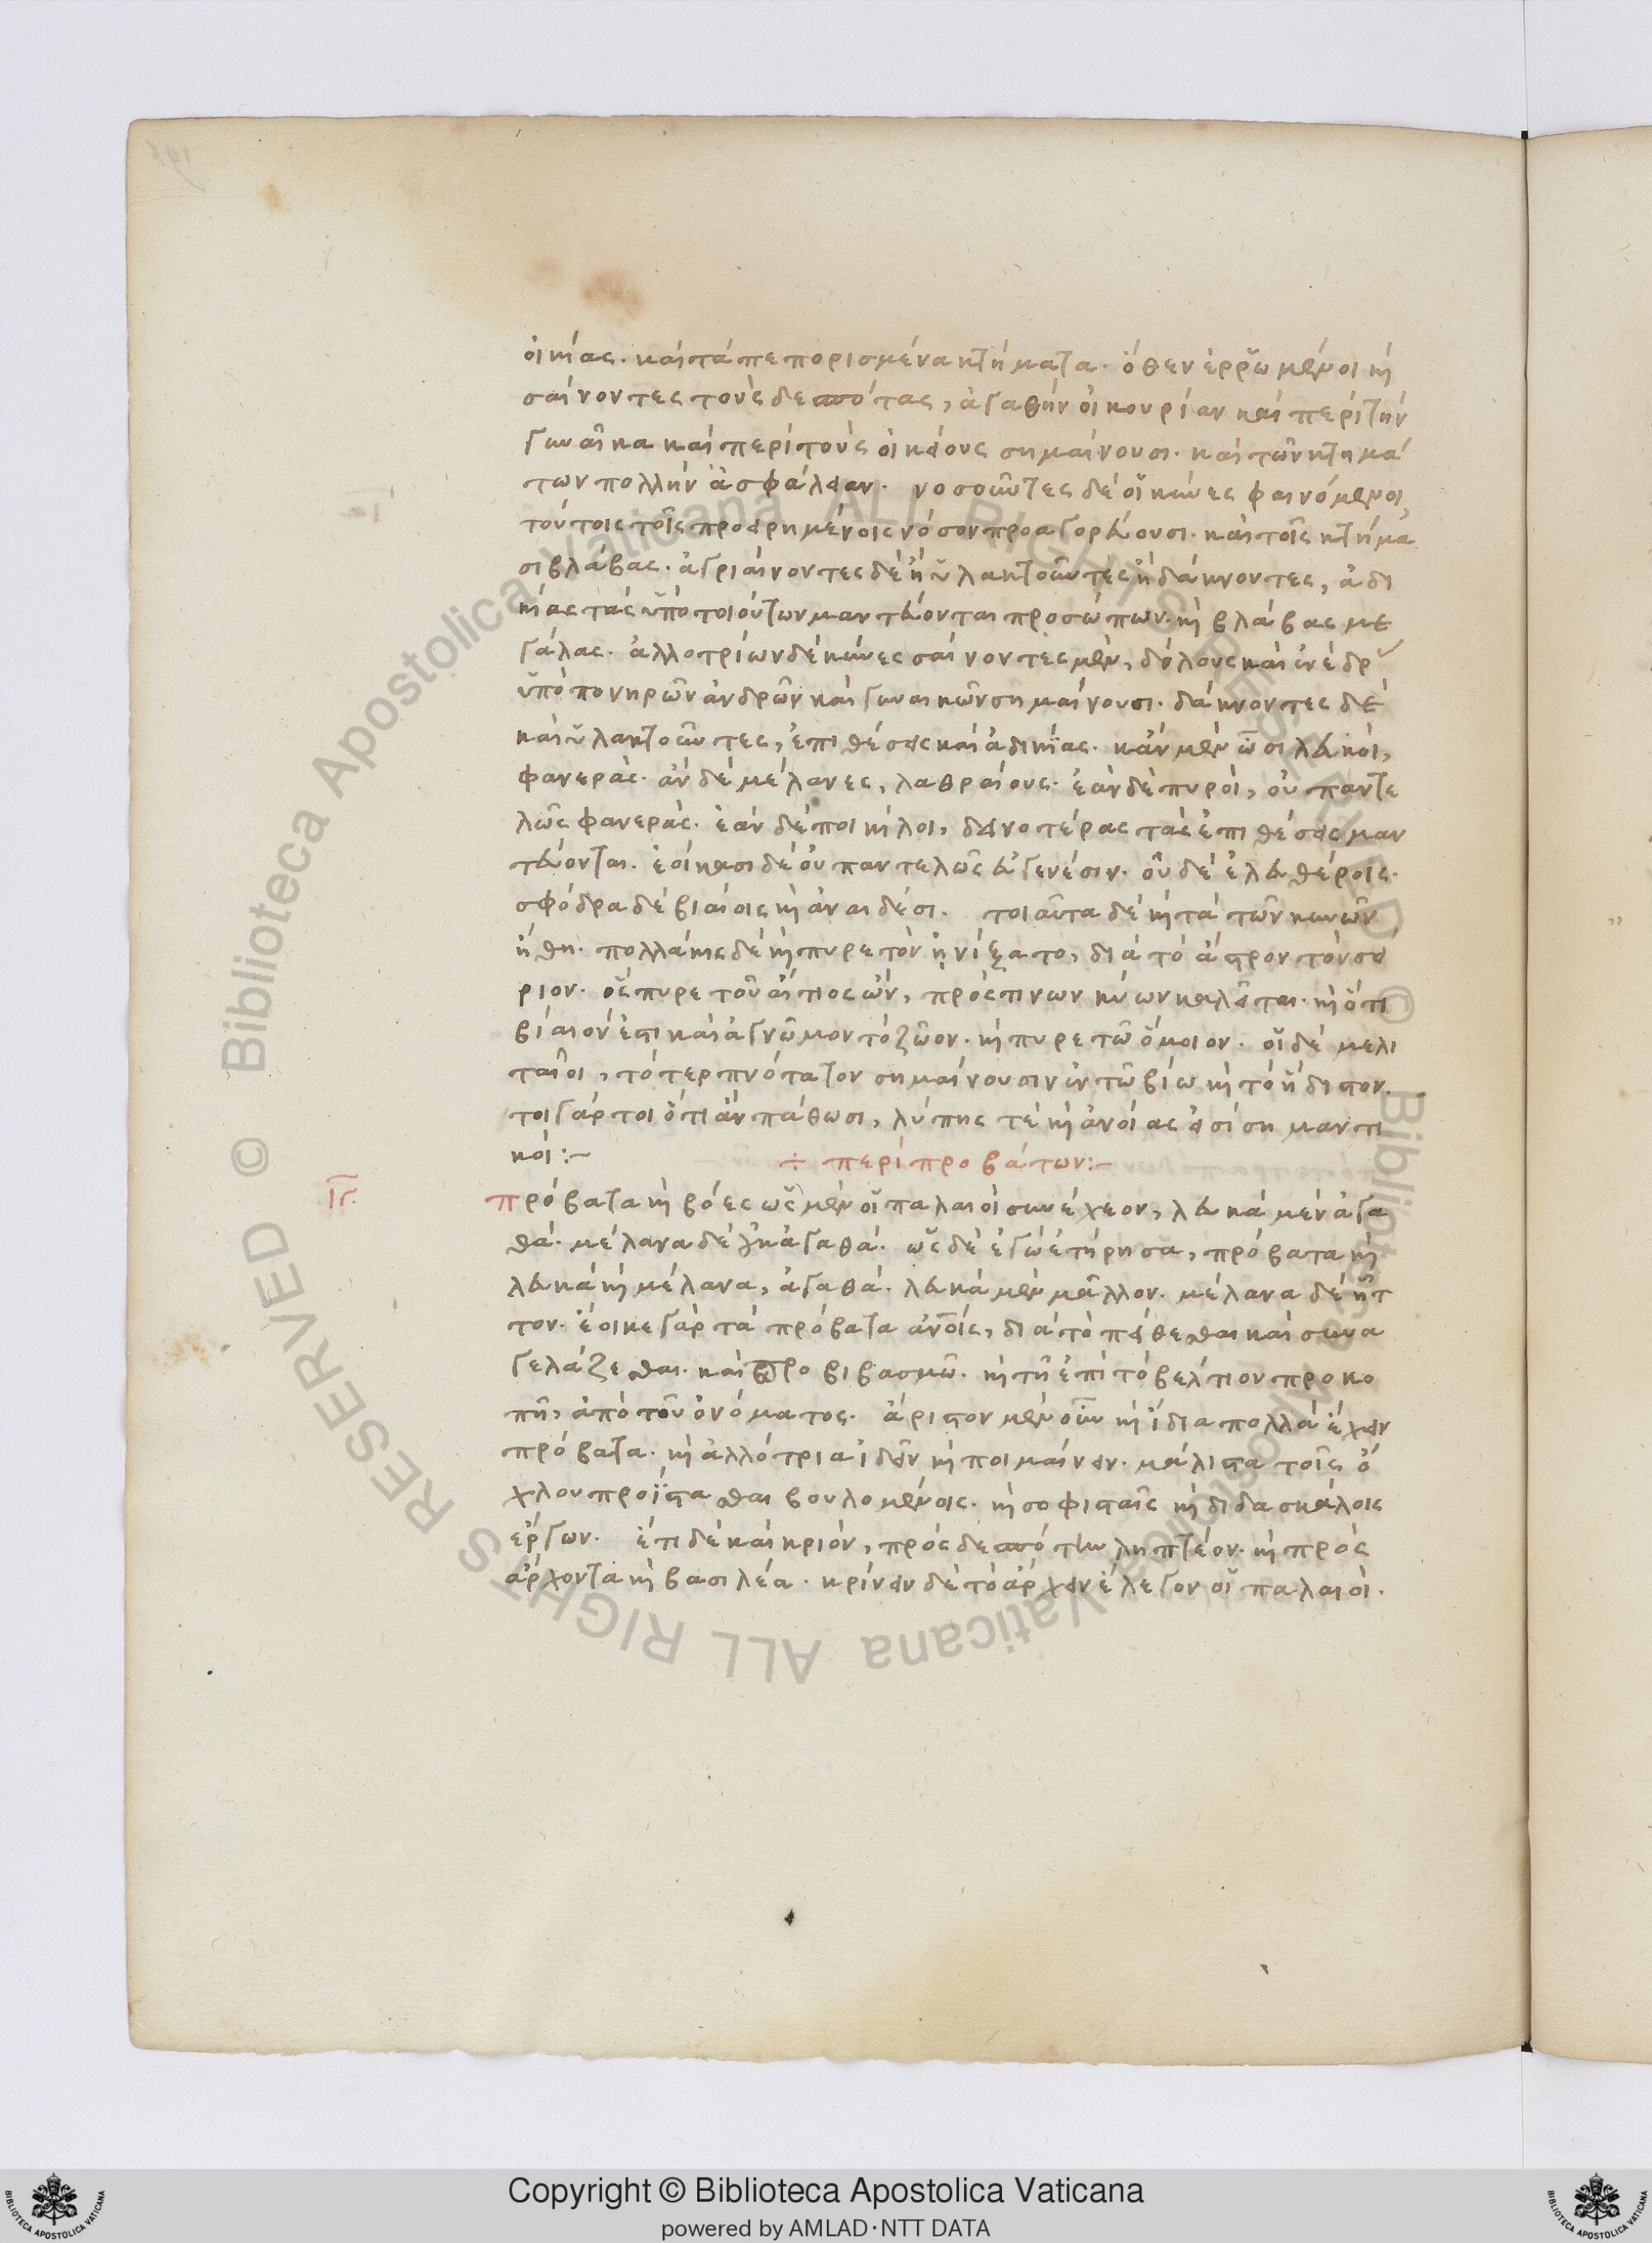 οἰκίας. καὶ τὰ πεπορισμένα κτήματα. ὅθεν ἐρρωμένοι καὶ
σαίνοντες τοὺς δεσπότας, ἀγαθὴν οἰκουρίαν καὶ περὶ τὴν
γυναῖκα καὶ περὶ τοὺς οἰκείους σημαίνουσι. καὶ τῶν κτημά
των πολλὴν ἀσφάλειαν. νοσοῦντες δὲ οἱ κύνες φαινόμενοι,
τούτοις τοῖς προειρημένοις νόσον προαγορεύουσι. καὶ τοῖς κτήμα
σι βλάβας. ἀγριαίνοντες δὲ ἢ ὑλακτοῦντες ἢ δάκνοντες, ἀδι
κίας τὰς ὑπὸ τοιούτων μαντεύονται προσώπων. καὶ βλάβας με
γάλας. ἀλλοτρίων δὲ κύνες σαίνοντες μὲν, δόλους καὶ ἐνέδρ
ὑπὸ πονηρῶν ἀνδρῶν καὶ γυναικῶν σημαίνουσι. δάκνοντες δὲ
καὶ ὑλακτοῦντες, ἐπιθέσεις καὶ ἀδικίας. κἂν μὲν ὦσι λευκοὶ,
φανεράς. ἂν δὲ μέλανες, λαθραίους. ἐὰν δὲ πυροὶ, οὐ παντε
λῶς φανεράς. ἐὰν δὲ ποικίλοι, δεινοτέρας τὰς ἐπιθέσεις μαν
τεύονται. ἐοίκασι δὲ οὐ παντελῶς εὐγενέσιν. οὐδὲ ἐλευθέροις.
σφόδρα δὲ βιαίοις καὶ ἀναιδέσι. τοιαῦτα δὲ καὶ τὰ τῶν κυνῶν
ἤθη. πολλάκις δὲ καὶ πυρετὸν ᾐνίξατο, διὰ τὸ ἄστρον τὸν σεί
ριον. ὃς πυρετοῦ αἴτιος ὢν, πρός τινων κύων καλεῖται. καὶ ὅτι
βίαιόν ἐστι καὶ ἀγνῶμον τὸ ζῶον. καὶ πυρετῶ ὅμοιον. οἱ δὲ μελι
ταῖοι, τὸ τερπνότατον σημαίνουσιν ἐν τῶ βίω καὶ τὸ ἥδιστον.
τοιγάρτοι ὅτι ἂν πάθωσι, λύπης τὲ καὶ ἀνοίας εἰσὶ σημαντι
κοί :~
÷ περὶ προβάτων :~
ιγ.
Πρόβατα καὶ βόες ὡς μὲν οἱ παλαιοὶ συνέχεον, λευκὰ μὲν ἀγα
θά. μέλανα δὲ οὐκ ἀγαθά. ὡς δὲ ἐγὼ ἐτήρησα, πρόβατα καὶ
λευκὰ καὶ μέλανα, ἀγαθά. λευκὰ μὲν μᾶλλον. μέλανα δὲ ἧτ
τον. ἔοικε γὰρ τὰ πρόβατα ἀνοῖς, διὰ τὸ πείθεσθαι καὶ συνα
γελάζεσθαι. καὶ προβιβασμῶ. καὶ τῆ ἐπὶ τὸ βέλτιον προκο
πῆ, ἀπὸ τοῦ ὀνόματος. ἄριστον μὲν οὖν καὶ ἴδια πολλὰ ἔχειν
πρόβατα. καὶ ἀλλότρια ἰδεῖν καὶ ποιμαίνειν. μάλιστα τοῖς ὄ
χλου προΐστασθαι βουλομένοις. καὶ σοφισταῖς καὶ διδασκάλοις
ἔργων. ἔτι δὲ καὶ κριὸν, πρὸς δεσπότην ληπτέον. καὶ πρὸς
ἄρχοντα καὶ βασιλέα. κρίνειν δὲ τὸ ἄρχειν ἔλεγον οἱ παλαιοί.
Copyright © Biblioteca Apostolica Vaticana
powered by AMLAD·NTT DATA